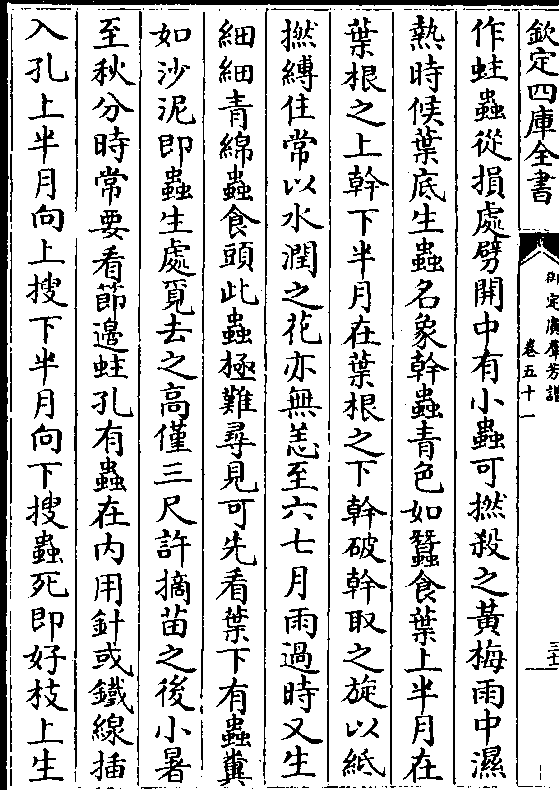 欽定四庫全書
御定廣羣芳譜
卷五十一
三十
作蛀蟲從損處劈開中有小蟲可撚殺之黃梅雨中濕
熱時候葉底生蟲名象幹蟲青色如蠶食葉上半月在
葉根之上幹下半月在葉根之下幹破幹取之旋以紙
撚縛住常以水潤之花亦無恙至六七月雨過時又生
細細青綿蟲食頭此蟲極難尋見可先看葉下有蟲糞
如沙泥即蟲生處覓去之高僅三尺許摘苗之後小暑
至秋分時常要看節邉蛀孔有蟲在内用針或鐵線插
入孔上半月向上搜下半月向下搜蟲死即好枝上生